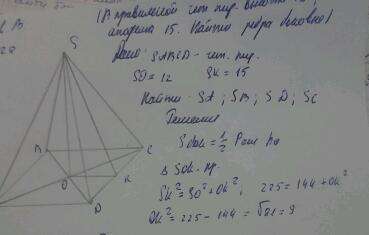 (В правильной чет. пир. высота
апофема 15. Найти ребра боковые)
Дано: SABCD - чет. пир.
SO = 12 SK = 15
Найти: SA; SB; SD; SC
Решение
Sбок = 1/2 Pосн ha
Δ SOK - пр.
SK² = SO² + OK²; 225 = 144 + OK²
OK² = 225 - 144 = √81 = 9
S
B
C
O
K
D